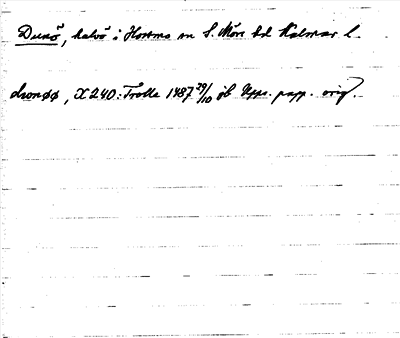 Dunö, halvö i Hossmo sn S. Möre hd Kalmar l.
dwnöö, X 240: Trolle 1487 29/10 jb Upps. papp. orig.